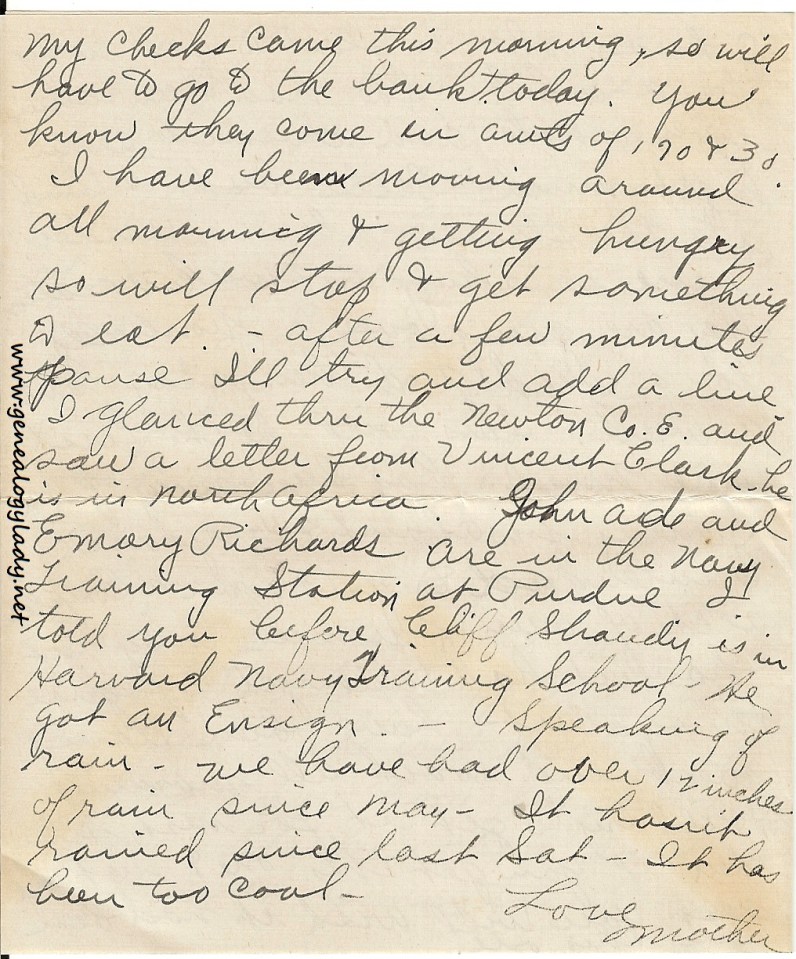 My checks came this morning, so will
have to go to the bank today. You
know they come in amts of 170 & 30.
I have been moving around
all morning & getting hungry
so will stop & get something
to eat. - after a few minutes
pause I'll try and add a line
I glanced thru the Newton Co. E. and
saw a letter from Vincent Clark - he
is in North Africa. John Ade and
Emory Richards are in the Navy
Training Station at Purdue I
told you before Cliff Shandy is in
Harvard Navy Training School - He
got an Ensign. - Speaking of
rain - we have had over 12 inches
of rain since May - It hasn't
rained since last Sat - It has
been too cool -
Love
Mother
www.genealogylady.net